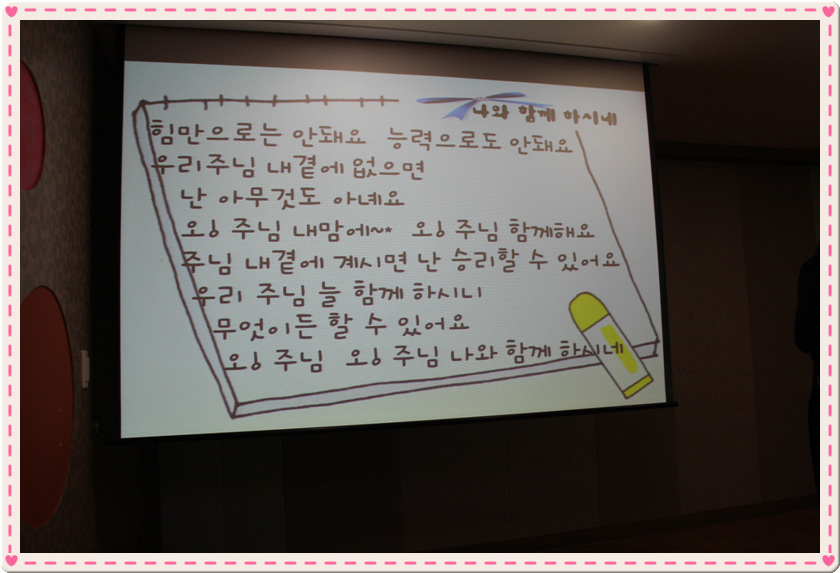 나와 함께 하시네
힘만으로는 안돼요 능력으로도 안돼요
우리주님 내곁에 없으면
난 아무것도 아녜요
오! 주님 내맘에~* 오! 주님 함께해요
주님 내곁에 계시면 난 승리할 수 있어요
우리 주님 늘 함께 하시니
무엇이든 할 수 있어요
오! 주님 오! 주님 나와 함께 하시네